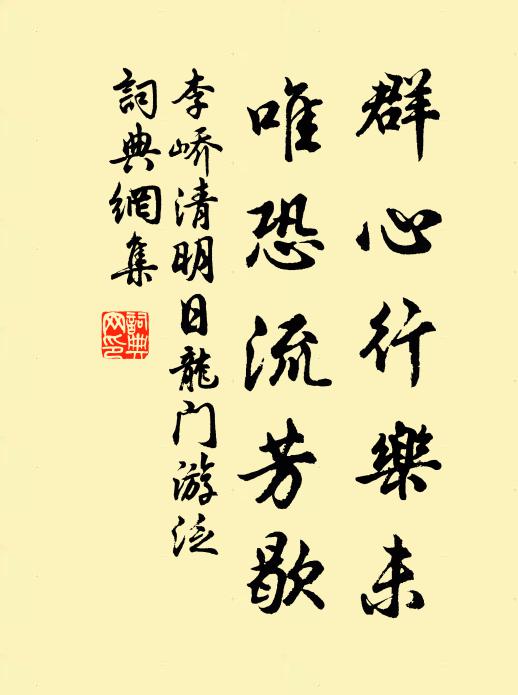 群心行樂未
唯恐流芳歇
李嶠清明日龍门游泛
詞典網集
詞典
网印